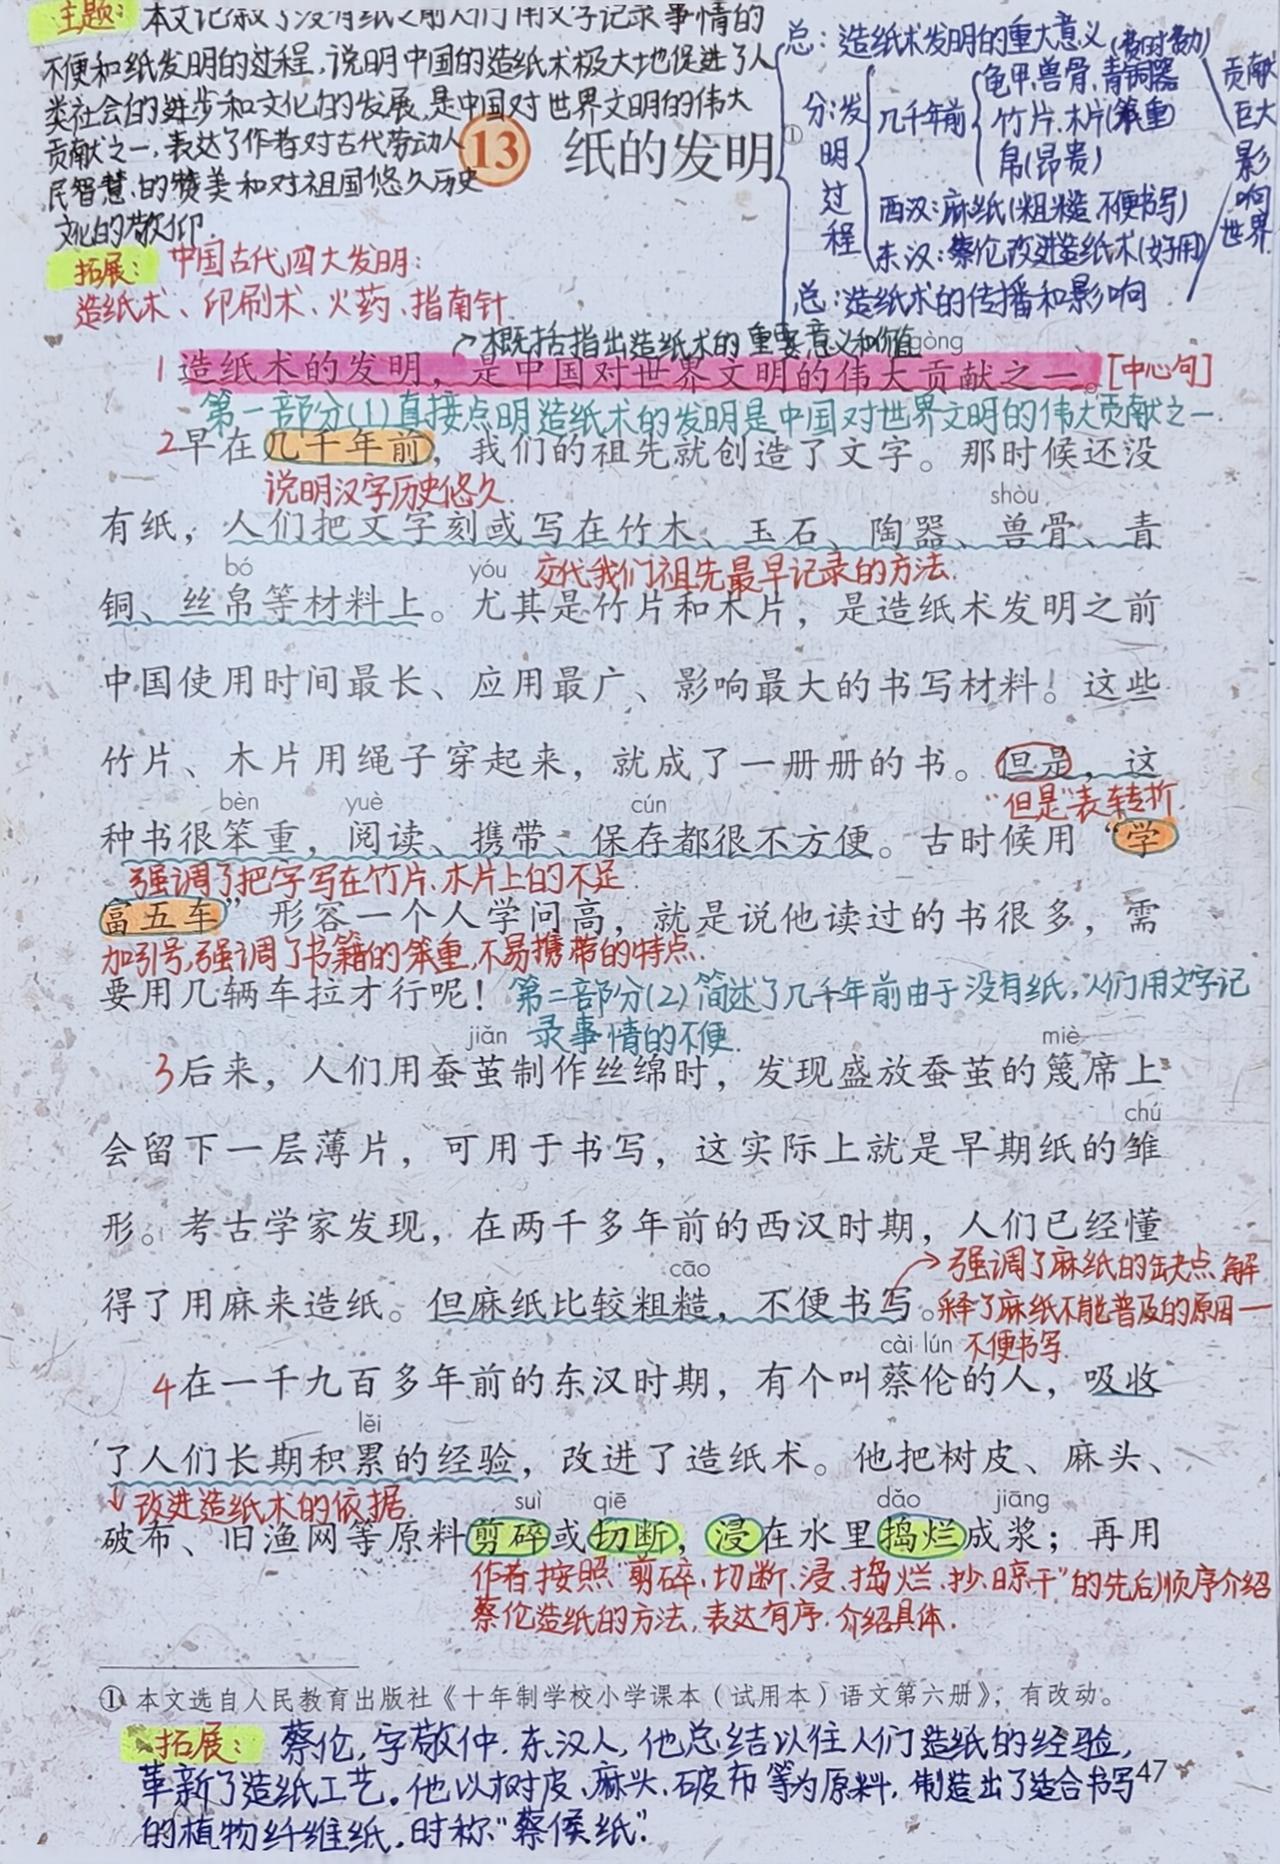 主题：本文记叙了没有纸之前人们用文字记录事情的
不便和纸发明的过程，说明中国的造纸术极大地促进了人
类社会的进步和文化的发展，是中国对世界文明的伟大
贡献之一，表达了作者对古代劳动人
民智慧的赞美和对祖国悠久历史
文化的敬仰．
13 纸的发明①
总：造纸术发明的重大意义（费时费力）
分：发明过程
几千年前
龟甲、兽骨、青铜器
竹片、木片（笨重）
帛（昂贵）
西汉：麻纸（粗糙、不便书写）
东汉：蔡伦改进造纸术（好用）
总：造纸术的传播和影响
贡献巨大 影响世界
拓展：中国古代四大发明：
造纸术、印刷术、火药、指南针
概括指出造纸术的重要意义和价值
gòng
1 造纸术的发明，是中国对世界文明的伟大贡献之一。[中心句]
第一部分(1)直接点明造纸术的发明是中国对世界文明的伟大贡献之一
2早在几千年前，我们的祖先就创造了文字。那时候还没
说明汉字历史悠久．
shòu
有纸，人们把文字刻或写在竹木、玉石、陶器、兽骨、青
bó yóu 交代我们祖先最早记录的方法．
铜、丝帛等材料上。尤其是竹片和木片，是造纸术发明之前
中国使用时间最长、应用最广、影响最大的书写材料！这些
竹片、木片用绳子穿起来，就成了一册册的书。但是，这
bèn yuè cún “但是”表转折．
种书很笨重，阅读、携带、保存都很不方便。古时候用“学
强调了把字写在竹片、木片上的不足
富五车”形容一个人学问高，就是说他读过的书很多，需
加引号，强调了书籍的笨重，不易携带的特点．
要用几辆车拉才行呢！第二部分(2)简述了几千年前由于没有纸，人们用文字记
jiǎn 录事情的不便． miè
3后来，人们用蚕茧制作丝绵时，发现盛放蚕茧的篾席上
chú
会留下一层薄片，可用于书写，这实际上就是早期纸的雏
形。考古学家发现，在两千多年前的西汉时期，人们已经懂
cāo 强调了麻纸的缺点，解
得了用麻来造纸。但麻纸比较粗糙，不便书写。释了麻纸不能普及的原因—
cài lún 不便书写．
4在一千九百多年前的东汉时期，有个叫蔡伦的人，吸收
lěi
了人们长期积累的经验，改进了造纸术。他把树皮、麻头、
改进造纸术的依据 suì qiē dǎo jiāng
破布、旧渔网等原料剪碎或切断，浸在水里捣烂成浆；再用
作者按照“剪碎、切断、浸、捣烂、抄、晾干”的先后顺序介绍
蔡伦造纸的方法，表达有序．介绍具体．
① 本文选自人民教育出版社《十年制学校小学课本（试用本）语文第六册》，有改动。
拓展：蔡伦，字敬仲．东汉人，他总结以往人们造纸的经验，
革新了造纸工艺。他以树皮、麻头、破布等为原料，制造出了适合书写
47
的植物纤维纸，时称“蔡侯纸”．